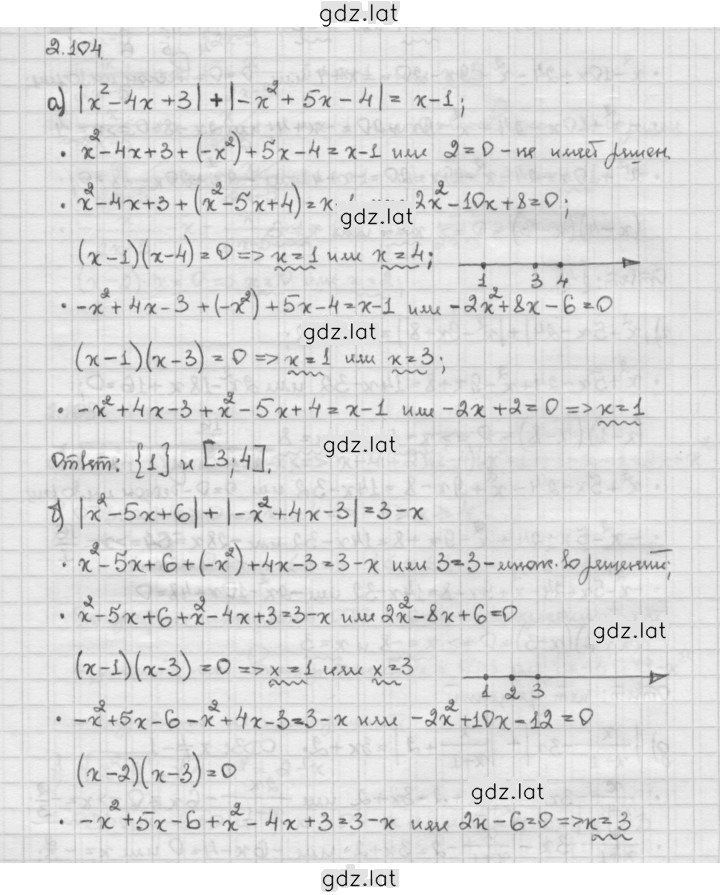 gdz.lat
2.104
а) |x²-4x+3| + |-x²+5x-4| = x-1;
• x²-4x+3+(-x²)+5x-4=x-1 или 2=0 - не имеет решен.
• x²-4x+3+(x²-5x+4)=x 2x²-10x+8=0;
gdz.lat
(x-1)(x-4)=0 => x=1 или x=4;
1 3 4
• -x²+4x-3+(-x²)+5x-4=x-1 или -2x²+8x-6=0
gdz.lat
(x-1)(x-3)=0 => x=1 или x=3;
• -x²+4x-3+x²-5x+4=x-1 или -2x+2=0 => x=1
gdz.lat
Ответ: {1} и [3;4].
б) |x²-5x+6|+|-x²+4x-3|=3-x
• x²-5x+6+(-x²)+4x-3=3-x или 3=3 - множ.
• x²-5x+6+x²-4x+3=3-x или 2x²-8x+6=0
gdz.lat
(x-1)(x-3)=0 => x=1 или x=3
1 2 3
• -x²+5x-6-x²+4x-3=3-x или -2x²+10x-12=0
(x-2)(x-3)=0
gdz.lat
• -x²+5x-6+x²-4x+3=3-x или 2x-6=0 => x=3
gdz.lat